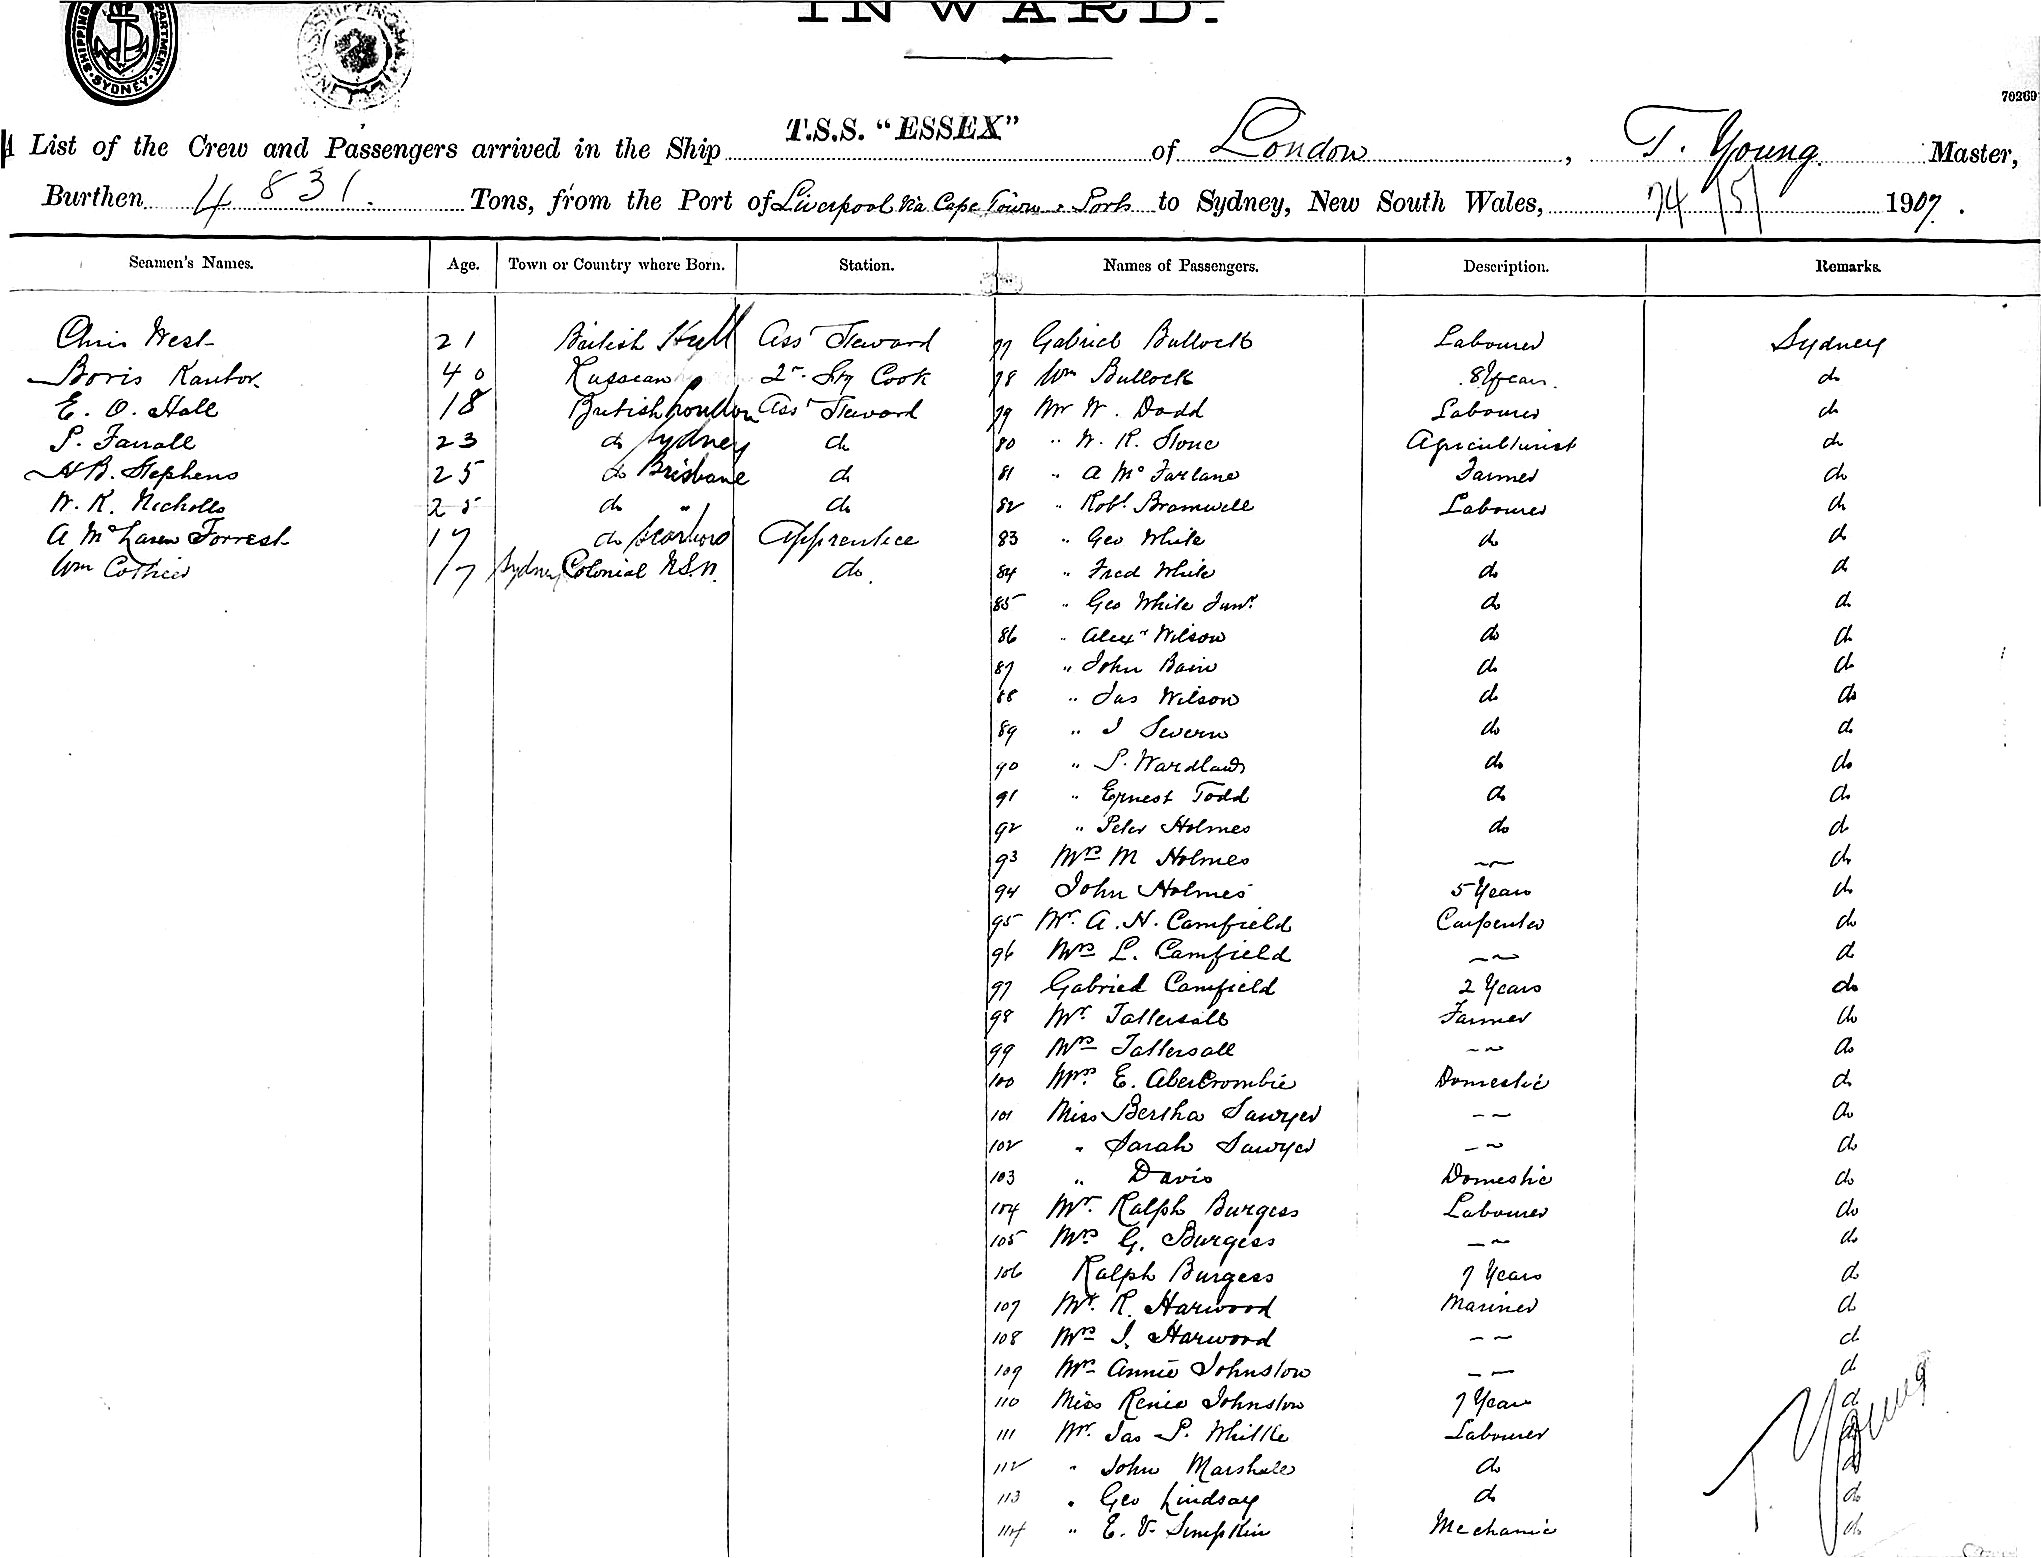 INWARD.
SHIPPING DEPARTMENT SYDNEY
70269
A List of the Crew and Passengers arrived in the Ship T.S.S. "ESSEX" of London, T. Young. Master,
Burthen 4831. Tons, from the Port of Liverpool via Cape Town & Ports to Sydney, New South Wales, 1907.
Seamen's Names. Age. Town or Country where Born. Station. Names of Passengers. Description. Remarks.
Chris West 21 British Hull Asst Steward 77 Gabriel Bullock Labourer Sydney
Boris Kantor. 40 Russian 2nd Cook 78 Wm Bullock 8 Years. do
E. O. Hall 18 British London Asst Steward 79 Mr W. Dodd Labourer do
P. Farrall 23 do Sydney do 80 " W. R. Stone Agriculturist do
H B. Stephens 25 do Brisbane do 81 " A McFarlane Farmer do
W. R. Nicholls 25 do " do 82 " Robt Bramwell Labourer do
A McLaren Forrest 17 do Scarboro Apprentice 83 " Geo White do do
Wm 17 Sydney Colonial N.S.W. do. 84 " Fred White do do
85 " Geo White Junr. do do
86 " Alexr Wilson do do
87 " John Bain do do
88 " Jas Wilson do do
89 " J Severn do do
90 " P. Wardlaw do do
91 " Ernest Todd do do
92 " Peter Holmes do do
93 Mrs M Holmes — do
94 John Holmes 5 Years do
95 Mr. A. H. Camfield Carpenter do
96 Mrs L. Camfield — do
97 Gabriel Camfield 2 Years do
98 Mr Tattersall Farmer do
99 Mrs Tattersall — do
100 Mrs. E. Abercrombie Domestic do
101 Miss Bertha Sawyer — do
102 " Sarah Sawyer — do
103 " Davis Domestic do
104 Mr. Ralph Burgess Labourer do
105 Mrs G. Burgess — do
106 Ralph Burgess 7 Years do
107 Mr. R. Harwood Mariner do
108 Mrs J. Harwood — do
109 Mrs Annie Johnston — do
110 Miss Renie Johnston 7 Years do
111 Mr. Jas P. Labourer do
112 " John Marshall do do
113 " Geo Lindsay do do
114 " E. V. Simpkin Mechanic do
T. Young